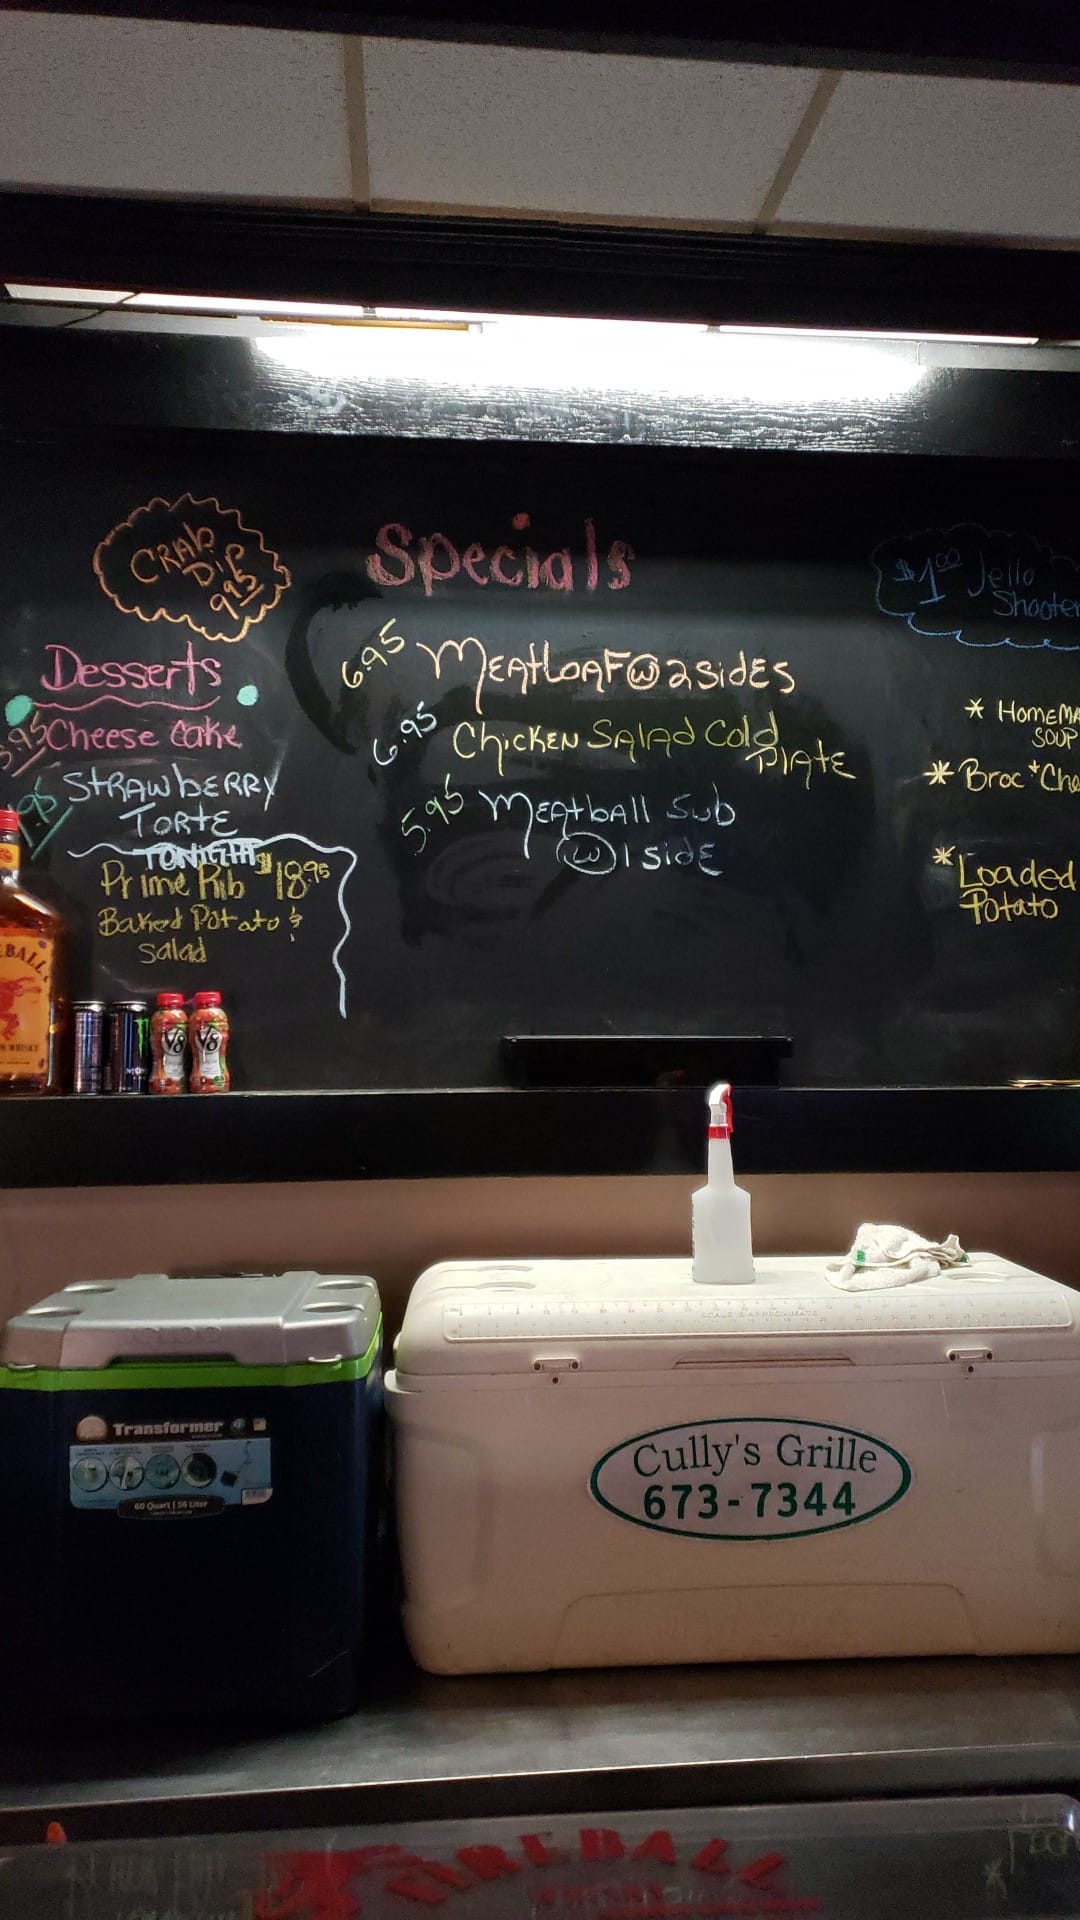 Crab
Dip
9.95
Specials
$1.00 Jello
Desserts
6.95 Meatloaf w 2 sides
Cheese Cake
6.95 Chicken Salad Cold
Plate
Strawberry
Torte
5.95 Meatball Sub
w 1 side
TONIGHT
Prime Rib $18.95
Baked Potato &
Salad
*
SOUP
* Broc +
* Loaded
Potato
V8
V8
WHISKY
IGLOO
SCALE IS APPROXIMATE
Transformer
60 Quart | 56 Liter
Cully's Grille
673-7344
FIREBALL